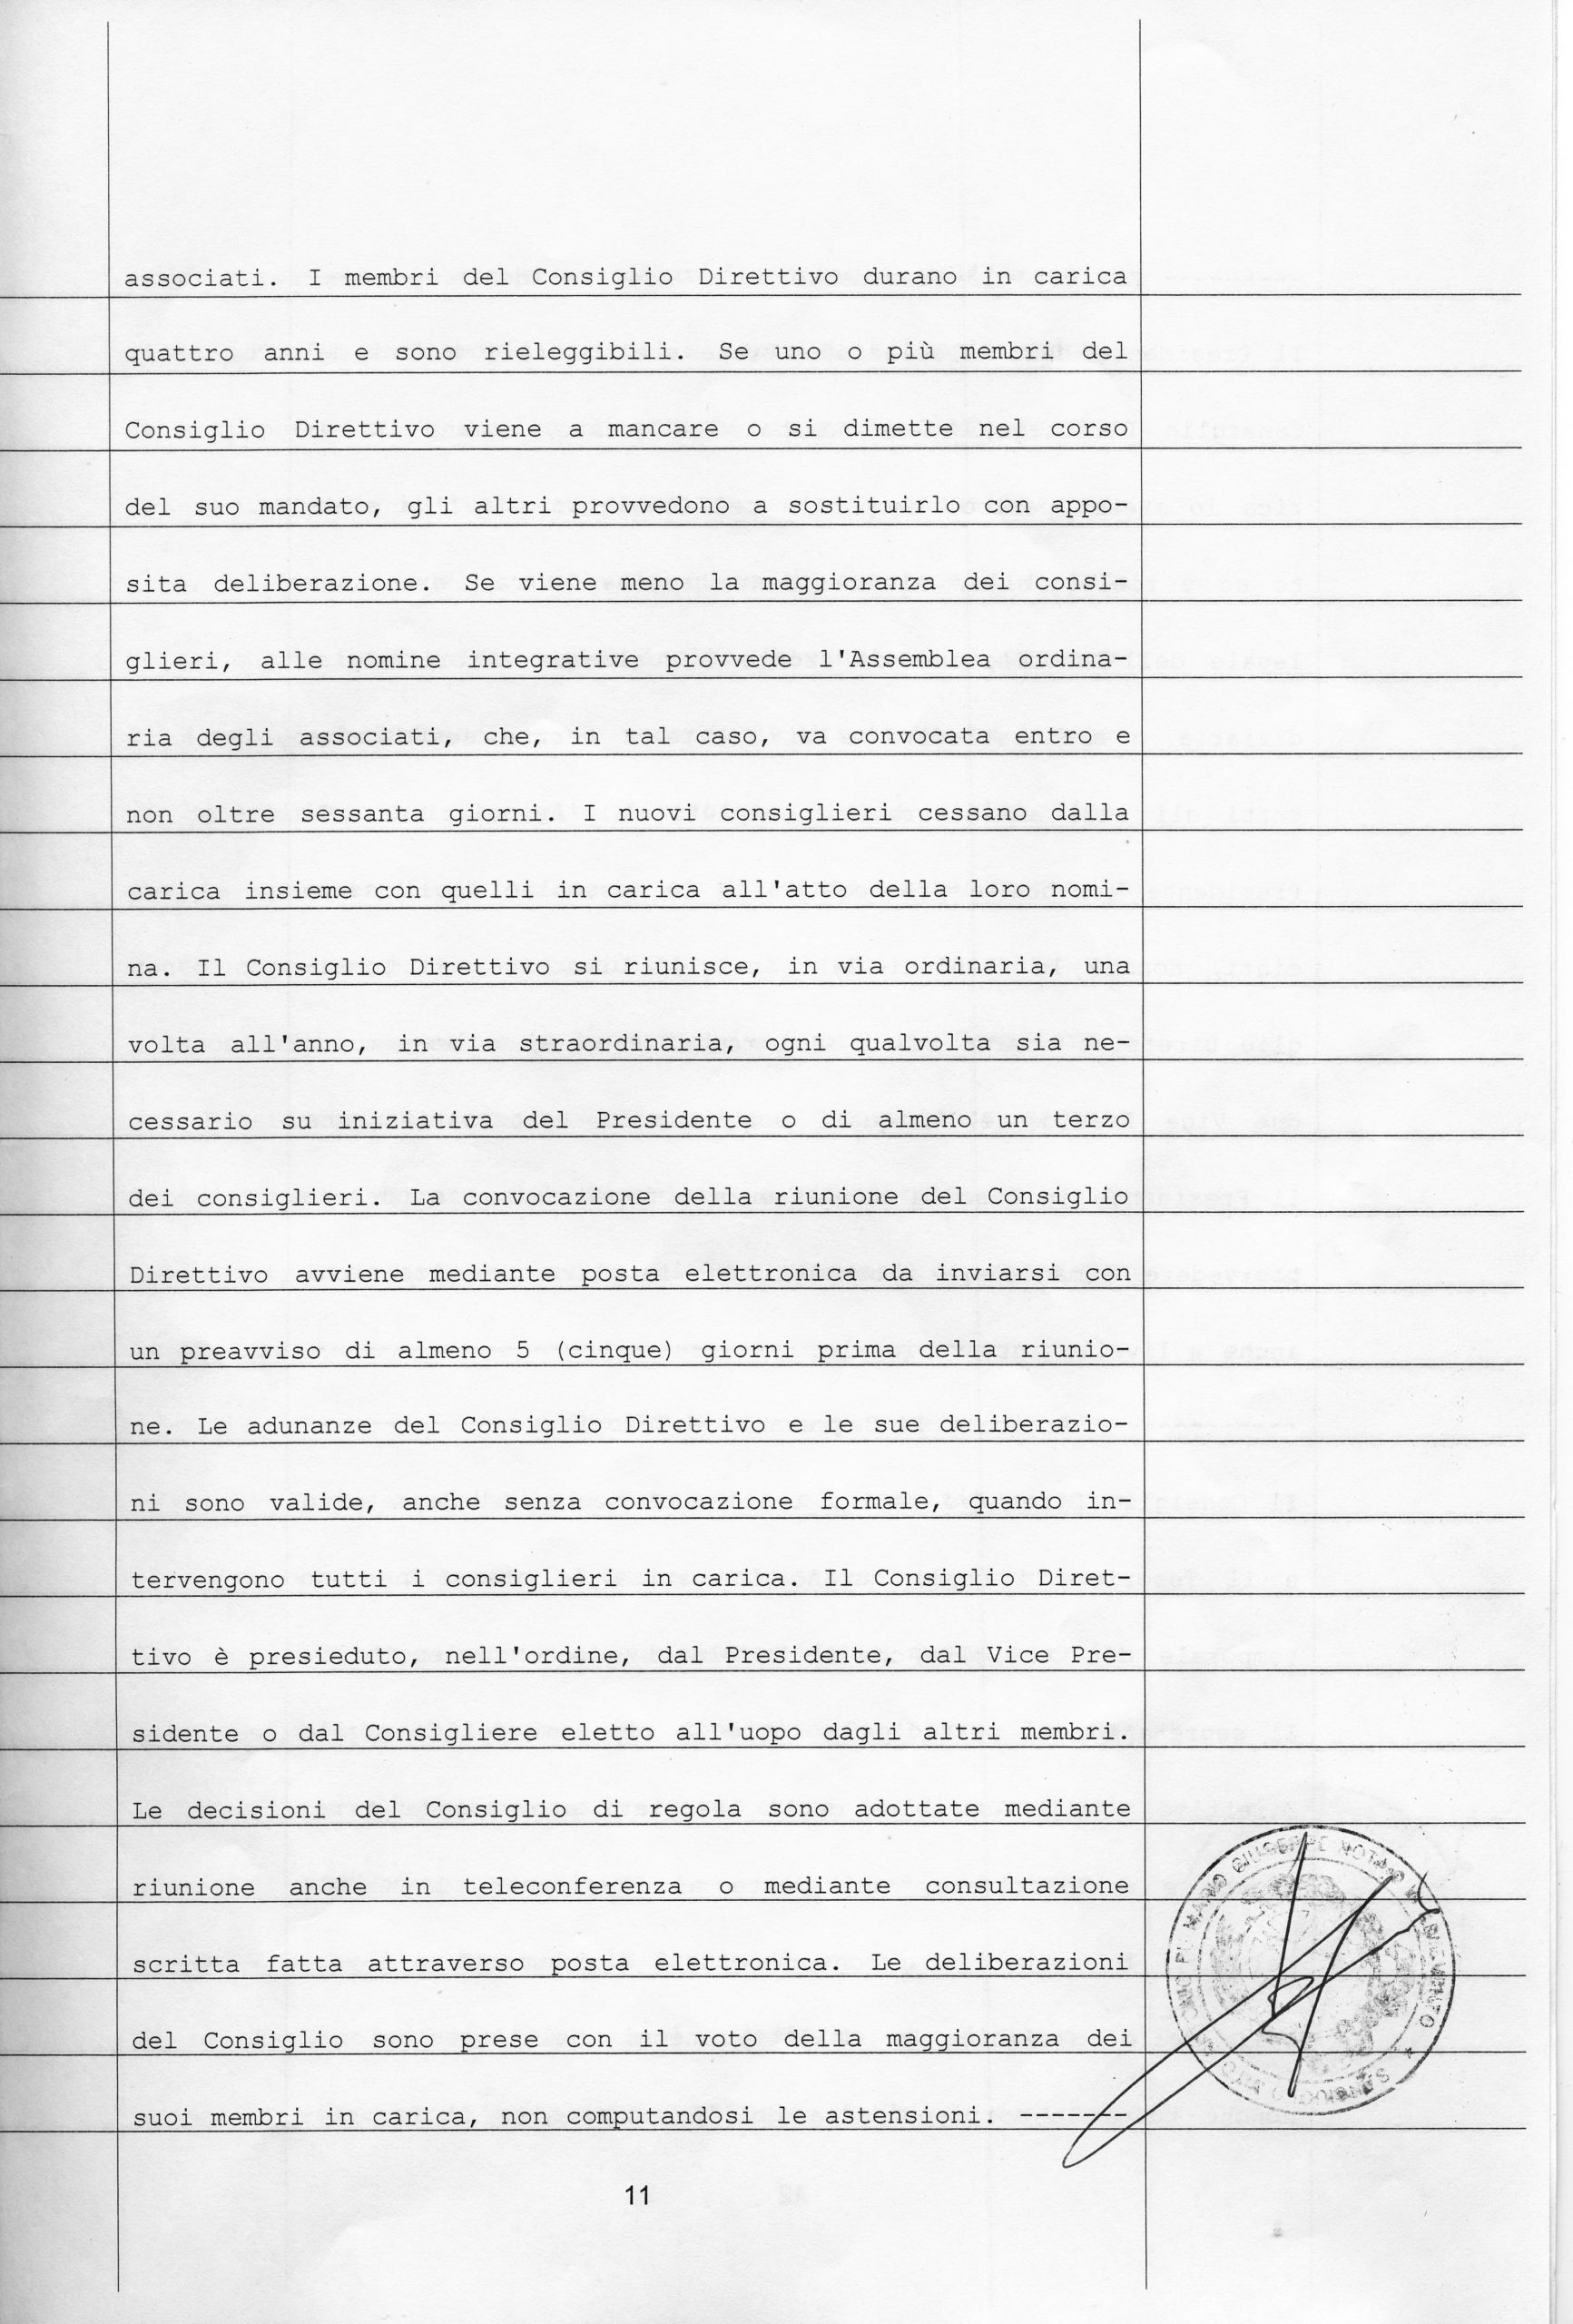 associati. I membri del Consiglio Direttivo durano in carica
quattro anni e sono rieleggibili. Se uno o più membri del
Consiglio Direttivo viene a mancare o si dimette nel corso
del suo mandato, gli altri provvedono a sostituirlo con appo-
sita deliberazione. Se viene meno la maggioranza dei consi-
glieri, alle nomine integrative provvede l'Assemblea ordina-
ria degli associati, che, in tal caso, va convocata entro e
non oltre sessanta giorni. I nuovi consiglieri cessano dalla
carica insieme con quelli in carica all'atto della loro nomi-
na. Il Consiglio Direttivo si riunisce, in via ordinaria, una
volta all'anno, in via straordinaria, ogni qualvolta sia ne-
cessario su iniziativa del Presidente o di almeno un terzo
dei consiglieri. La convocazione della riunione del Consiglio
Direttivo avviene mediante posta elettronica da inviarsi con
un preavviso di almeno 5 (cinque) giorni prima della riunio-
ne. Le adunanze del Consiglio Direttivo e le sue deliberazio-
ni sono valide, anche senza convocazione formale, quando in-
tervengono tutti i consiglieri in carica. Il Consiglio Diret-
tivo è presieduto, nell'ordine, dal Presidente, dal Vice Pre-
sidente o dal Consigliere eletto all'uopo dagli altri membri.
Le decisioni del Consiglio di regola sono adottate mediante
riunione anche in teleconferenza o mediante consultazione
scritta fatta attraverso posta elettronica. Le deliberazioni
del Consiglio sono prese con il voto della maggioranza dei
suoi membri in carica, non computandosi le astensioni. -------
MARIO GIUSEPPE NOTAIO
11